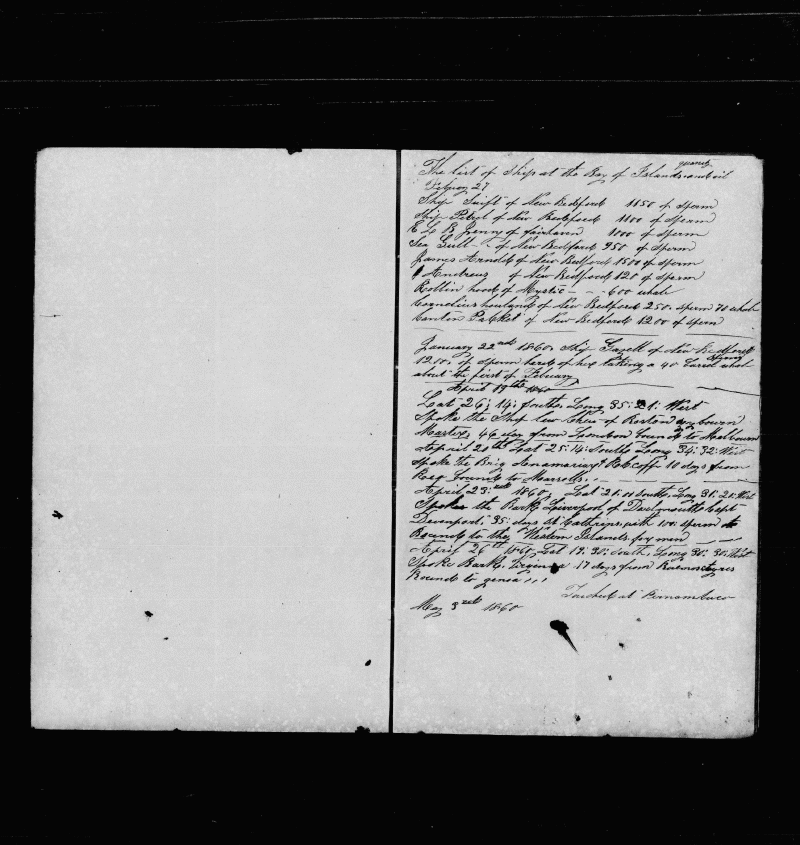 quantity
The list of Ship at the Bay of Islands and oil
27
Ship Swift of New Bedford 1150 of sperm
Ship Petrel of New Bedford 1100 of sperm
E L B Jenny of fairhaven 1000 of sperm
Sea Gull - of New Bedford 950 of sperm
James Arnold of New Bedford 1500 of sperm
Andrews of New Bedford 120 of sperm
Rollin of Mystic - - 600 whal
Cornelius howland of New Bedford 250 sperm 70 whal
Canton Packet of New Bedford 1200 of sperm
January 22 1860 Ship Gazell of New Bedford
1200 of sperm of her taking a 40 barrel whal
about the first of
April 19th 1860
Lat 26: 14: South, Long 35: 21: West
Spoke the Ship of Boston
Master, 46 day from London bound to
April 20th Lat 25: 14: South Long 34: 32: West
Spoke the Brig 10 days from
bound to
April 23: 1860, Lat 21: South, Long 31: 21: West
Spoke the Bark Liverpool of Dartmouth Capt
Devenport, 35: days St Cathrins, with 100 sperm
Bound to the Western Islands for men
April 26th 1860, Lat 19: 30: South, Long 30: 30: West
Spoke Bark, Virginia 17 days from
Bound to genoa
at Pernambuco
May 3 1860